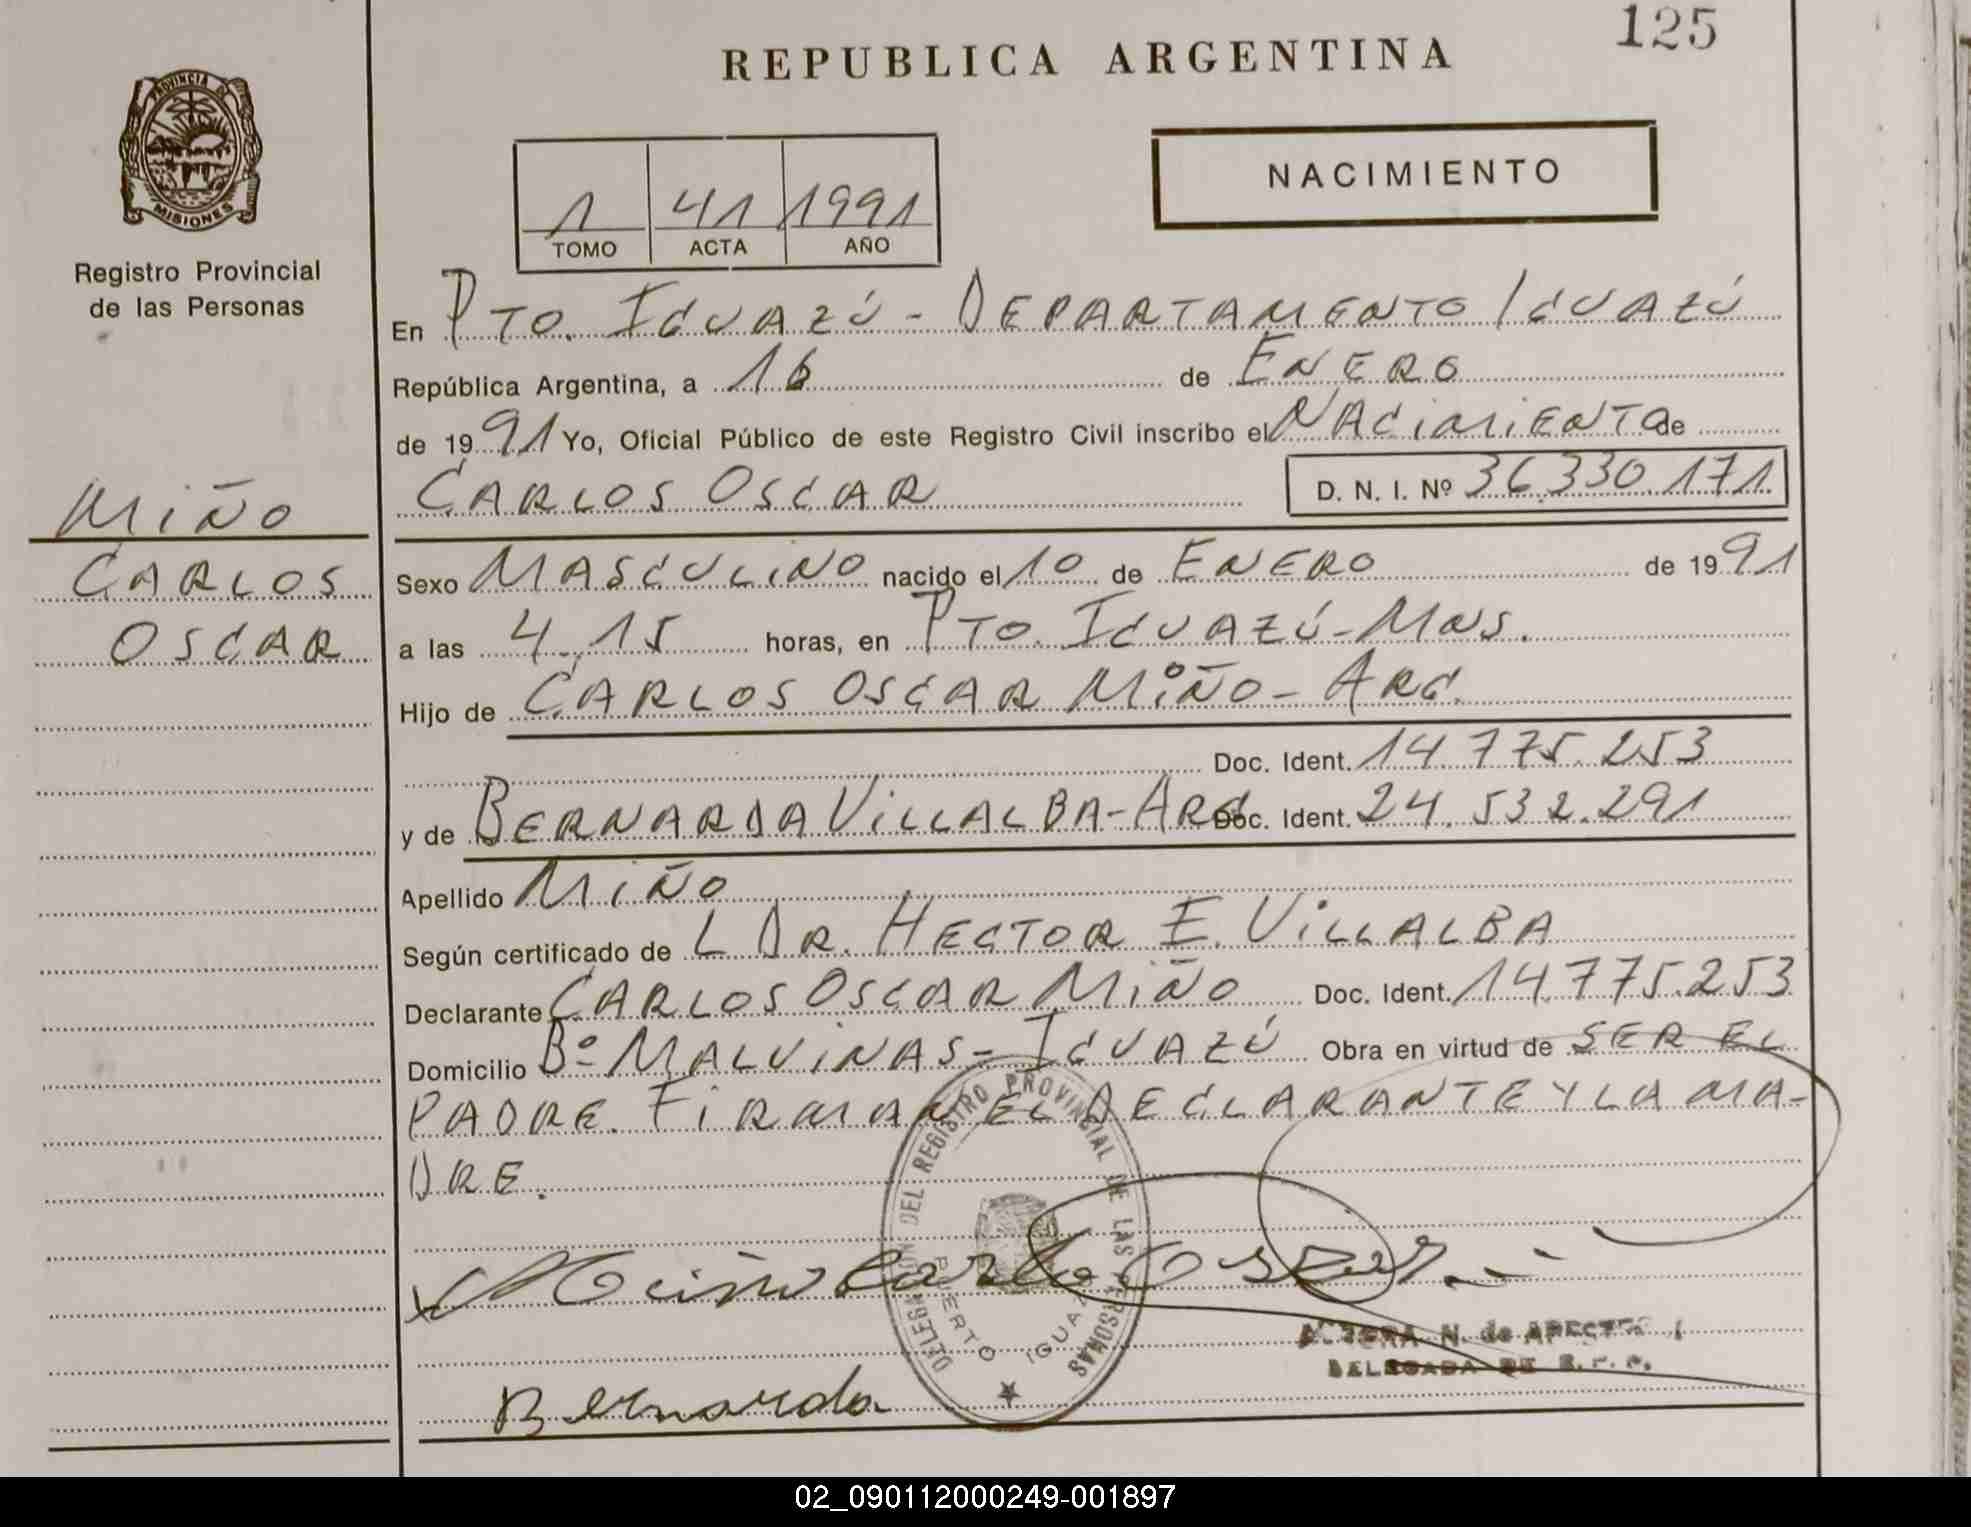 125
REPUBLICA ARGENTINA
PROVINCIA DE
MISIONES
Registro Provincial
de las Personas
NACIMIENTO
1 41 1991
TOMO ACTA AÑO
En PTO. IGUAZÚ - DEPARTAMENTO IGUAZÚ
República Argentina, a 16 de ENERO
de 1991 Yo, Oficial Público de este Registro Civil inscribo el NACIMIENTO de
CARLOS OSCAR D. N. I. Nº 36.330.171
MIÑO
CARLOS
OSCAR
Sexo MASCULINO nacido el 10 de ENERO de 1991
a las 4.15 horas, en PTO. IGUAZÚ-MNS.
Hijo de CARLOS OSCAR MIÑO - ARG.
Doc. Ident. 14.775.253
y de BERNARDA VILLALBA-ARG Doc. Ident. 24.532.291
Apellido MIÑO
Según certificado de L DR. HECTOR E. VILLALBA
Declarante CARLOS OSCAR MIÑO Doc. Ident. 14.775.253
Domicilio Bº MALVINAS - IGUAZÚ Obra en virtud de SER EL
PADRE. FIRMAN EL DECLARANTE Y LA MA-
DRE.
DELEGACION DEL REGISTRO PROVINCIAL DE LAS PERSONAS
PUERTO IGUAZU
Miño Carlos Oscar
N. de
DELEGADA DE R. P. P.
Bernarda
02_090112000249-001897